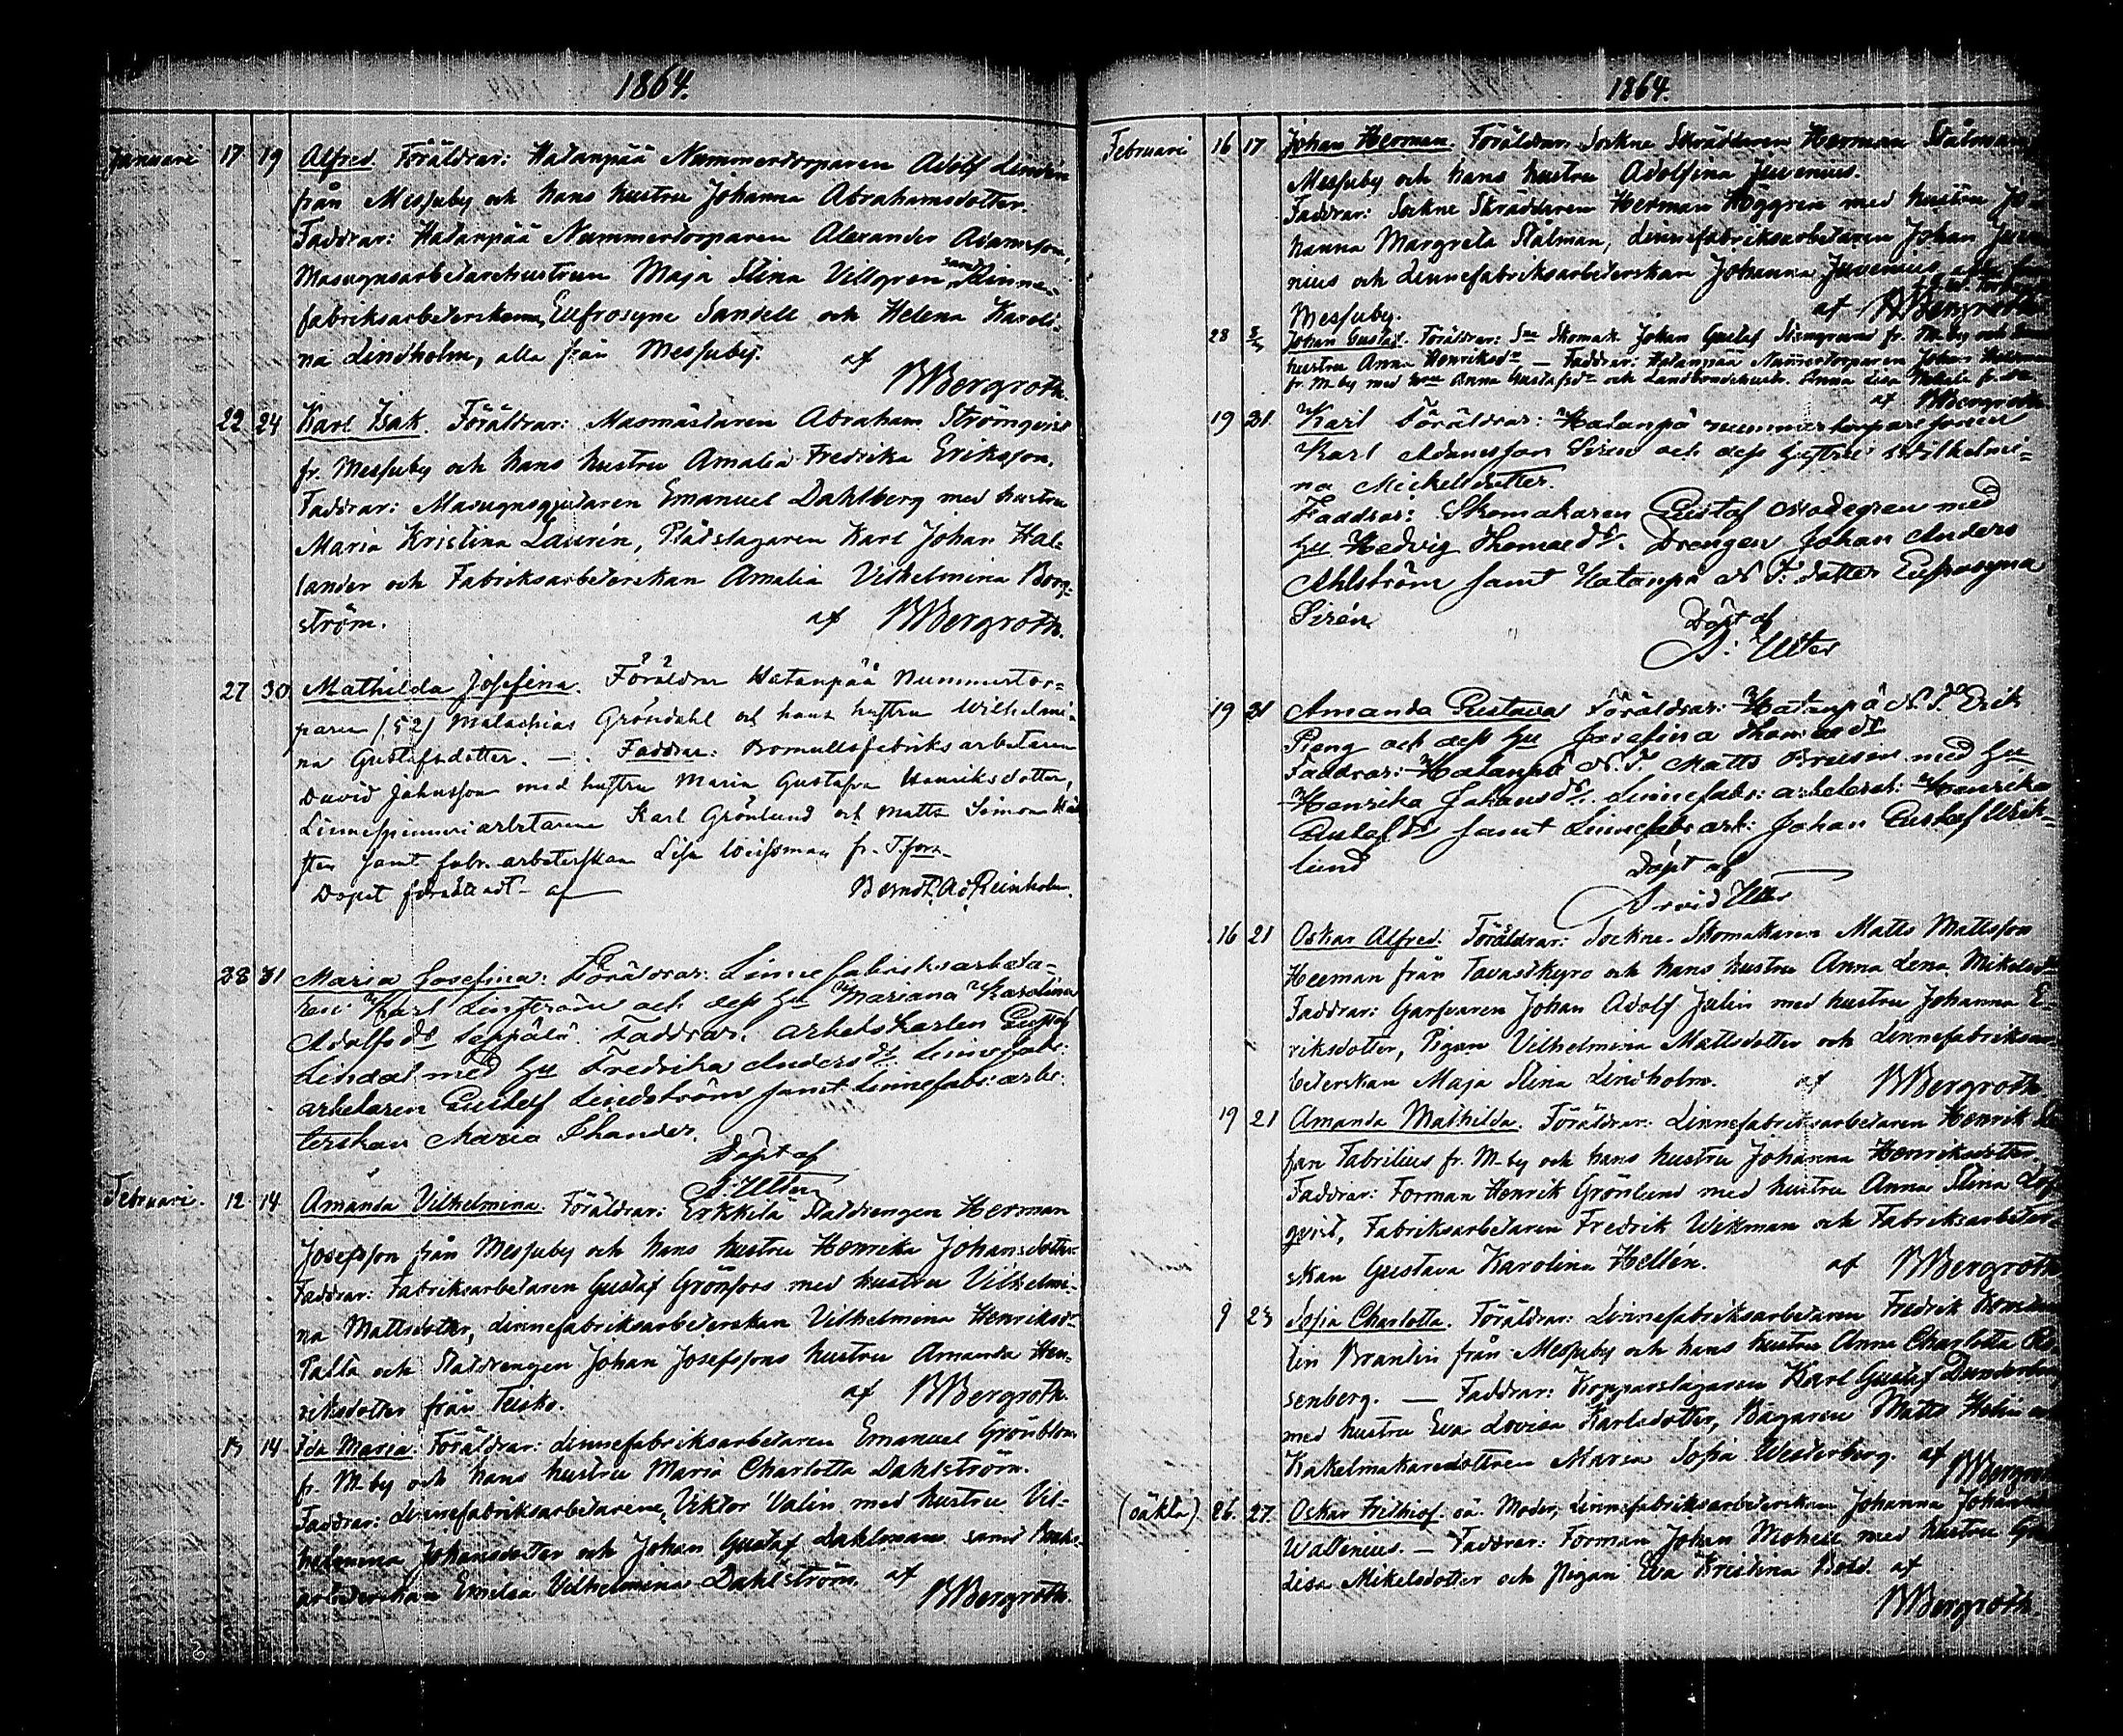 1864.
Januari 17 19 Alfred. Föräldrar: Hatanpää Nummertorparen Adolf Lindén
från Messuby och hans hustru Johanna Abrahamsdotter.
Faddrar: Hatanpää Nummertorparen Alexander Adamsson,
Masugnsarbetarehustrun Maja Stina Villgren, samt Linne-
fabriksarbeterskorna, Eufrosyne Sandell och Helena Karoli-
na Lindholm, alla från Messuby. af
BBergroth.
22 24 Karl Isak. Föräldrar: Masmästaren Abraham Strömqvist
fr. Messuby och hans hustru Amalia Fredrika Eriksson.
Faddrar: Masugnsgjutaren Emanuel Dahlberg med hustru
Maria Kristina Laurén, Plåtslagaren Karl Johan Hal-
lander och Fabriksarbeterskan Amalia Vilhelmina Borg-
ström. af BBergroth.
27 30 Mathilda Josefina. Föräldrar Hatanpää Nummertor-
paren (52) Malachias Gröndahl och hans hustru Wilhelmi-
na Gustafsdotter. — . Faddrar: Bomullsfabriks arbetaren
David Johnsson med hustru Maria Gustafva Henriksdotter,
Linnespinneriarbetarene Karl Grönlund och Matts Simon
samt fabr. arbeterskan Lisa Weissman fr. T.fors.
Dopet förrättadt af Berndt. Ad. Reinholm.
28 31 Maria Josefina: Föräldrar: Linnefabriksarbeta-
ren Karl Lingström och dess Hu Mariana Karolina
Adolfsdr Seppälä. Faddrar. arbetskarlen Gustaf
Lindal med Hu Fredrika Andersdr. Linnefabr:
arbetaren Gustaf Lindström samt Linnefabr: arbe-
terskan Maria Thander.
Döpt af
A: Utter
Februari. 12 14 Amanda Vilhelmina. Föräldrar: Erkkilä Statdrengen Herman
Josefsson från Messuby och hans hustru Henrika Johansdotter.
Faddrar: Fabriksarbetaren Gustaf Grönfors med hustru Vilhelmi-
na Mattsdotter, Linnefabriksarbeterskan Vilhelmina Henriksdr
Palta och Statdrengen Johan Josefssons hustru Amanda Hen-
riksdotter från Teisko. af BBergroth.
13. 14 Ida Maria. Föräldrar: Linnefabriksarbetaren Emanuel Grönblom
fr. M-by och hans hustru Maria Charlotta Dahlström.
Faddrar: Linnefabriksarbetarene, Viktor Valin med hustru Vil-
helmina Johansdotter och Johan Gustaf Dahlman samt
arbeterskan Emilia Vilhelmina Dahlström. af
BBergroth.
1864.
Februari 16 17 Johan Herman. Föräldrar: Sockne Skräddaren Herman Stålman
Messuby och hans hustru Adolfina Juvenius.
Faddrar: Sockne Skräddaren Herman Höggren med hustru Jo-
hanna Margreta Stålman, Linnefabriksarbetaren Johan Juve-
nius och Linnefabriksarbeterskan Johanna Juvenius,
Messuby. af BBergroth.
28 Johan Gustaf. Föräldrar: Sne Skomak. Johan Gustaf Stengrund fr. M-by och
hustru Anna Henriksdr — Faddrar: Hatanpää Nummertorparen Johan
fr. M-by med Anna Gustafsdr och Landbondehustr. Anna Lisa
af BBergroth
19 21 Karl Föräldrar: Hatanpä nummertorparesonen
Karl Adamsson Siren och dess hustru Wilhelmi-
na Mickelsdotter.
Faddrar: Skomakaren Gustaf Modegren med
Hu Hedvig Thomasdr. Drengen Johan Anders
Ahlström samt Hatanpä N. T: dotter Eufrosyna
Sirén.
Döpt af
A: Utter
19 21 Amanda Gustava Föräldrar: Hatanpä N. T. Erik
och dess Hu Josefina Thomasdr
Faddrar: Hatanpä N. T Matts med Hu
Henrika Johansdr. Linnefabr: arbetersk: Henrika
samt Linnefabr arb: Johan Gustaf Wik-
lund
Döpt af
Arvid Utter
16 21 Oskar Alfred. Föräldrar: Sockne-Skomakaren Matts Mattsson
Heeman från Tavastkyro och hans hustru Anna Lena Mikelsdr
Faddrar: Garfvaren Johan Adolf Julin med hustru Johanna E-
riksdotter, Pigan Vilhelmina Mattsdotter och Linnefabriksar-
beterskan Maja Stina Lindholm. af BBergroth
19 21 Amanda Mathilda. Föräldrar: Linnefabriksarbetaren Henrik
fan Fabrilius fr. M-by och hans hustru Johanna Henriksdotter.
Faddrar: Forman Henrik Grönlund med hustru Anna Stina Löf-
qvist, Fabriksarbetaren Fredrik Wikman och Fabriksarbeter-
skan Gustava Karolina Hellén. af BBergroth
9 23 Sofia Charlotta. Föräldrar: Linnefabriksarbetaren Fredrik
tin Brantin från Messuby och hans hustru Anna Charlotta Ro-
senberg. — Faddrar: Kopparslagaren Karl Gustaf
med hustru Eva Lovisa Karlsdotter, Bagaren Matts Holm
Kakelmakaredottren Maria Sofia Westerberg. af
BBergroth
(oäkta) 26. 27. Oskar Frithiof. oä. Moder, Linnefabriksarbeterskan Johanna
Wallenius. — Faddrar: Forman Johan Mohell med hustru
Lisa Mikelsdotter och Pigan Eva Kristina af
BBergroth.